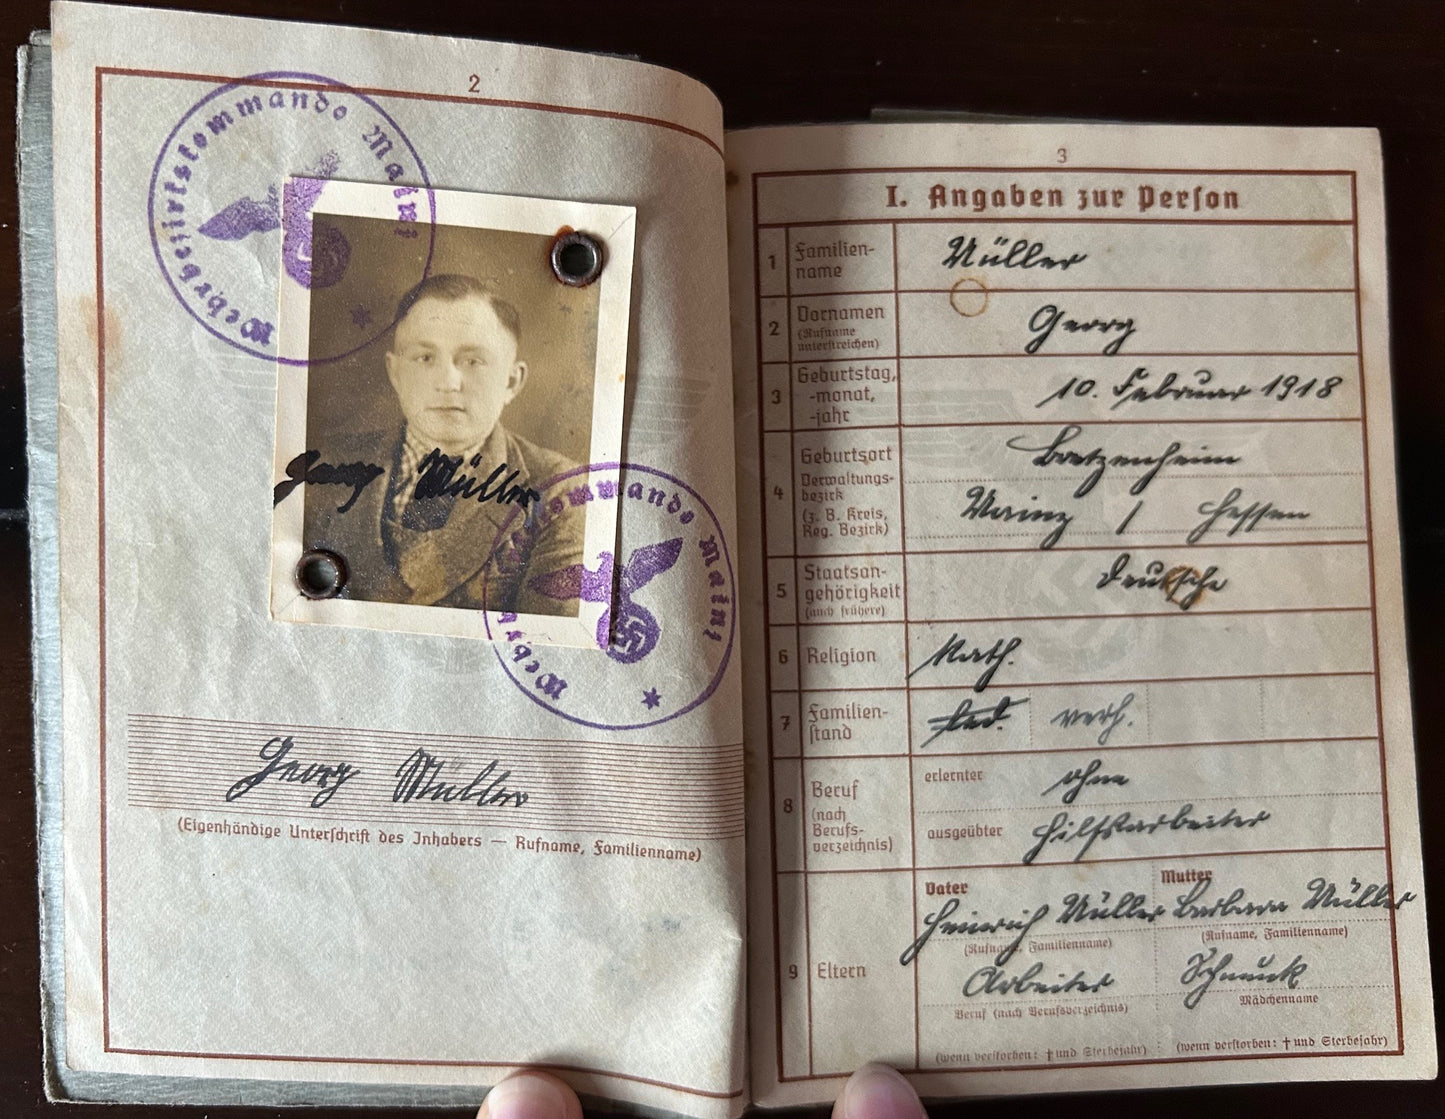 2
Wehrbezirkskommando Mainz
Georg Müller
kommando Mainz
Georg Müller
(Eigenhändige Unterschrift des Inhabers — Rufname, Familienname)
3
I. Angaben zur Person
1 Familien-
name
Müller
2 Vornamen
(Rufname
unterstreichen)
Georg
3 Geburtstag,
-monat,
-jahr
10. Februar 1918
4 Geburtsort
Verwaltungs-
bezirk
(z. B. Kreis,
Reg. Bezirk)
Bretzenheim
Mainz / Hessen
5 Staatsan-
gehörigkeit
(auch frühere)
deutsche
6 Religion
Kath.
7 Familien-
stand
led. verh.
8 Beruf
(nach
Berufs-
verzeichnis)
erlernter ohne
ausgeübter Hilfsarbeiter
9 Eltern
Vater
Heinrich Müller
(Rufname, Familienname)
Arbeiter
Beruf (nach Berufsverzeichnis)
(wenn verstorben: † und Sterbejahr)
Mutter
Barbara Müller
(Rufname, Familienname)
Schmuck
Mädchenname
(wenn verstorben: † und Sterbejahr)